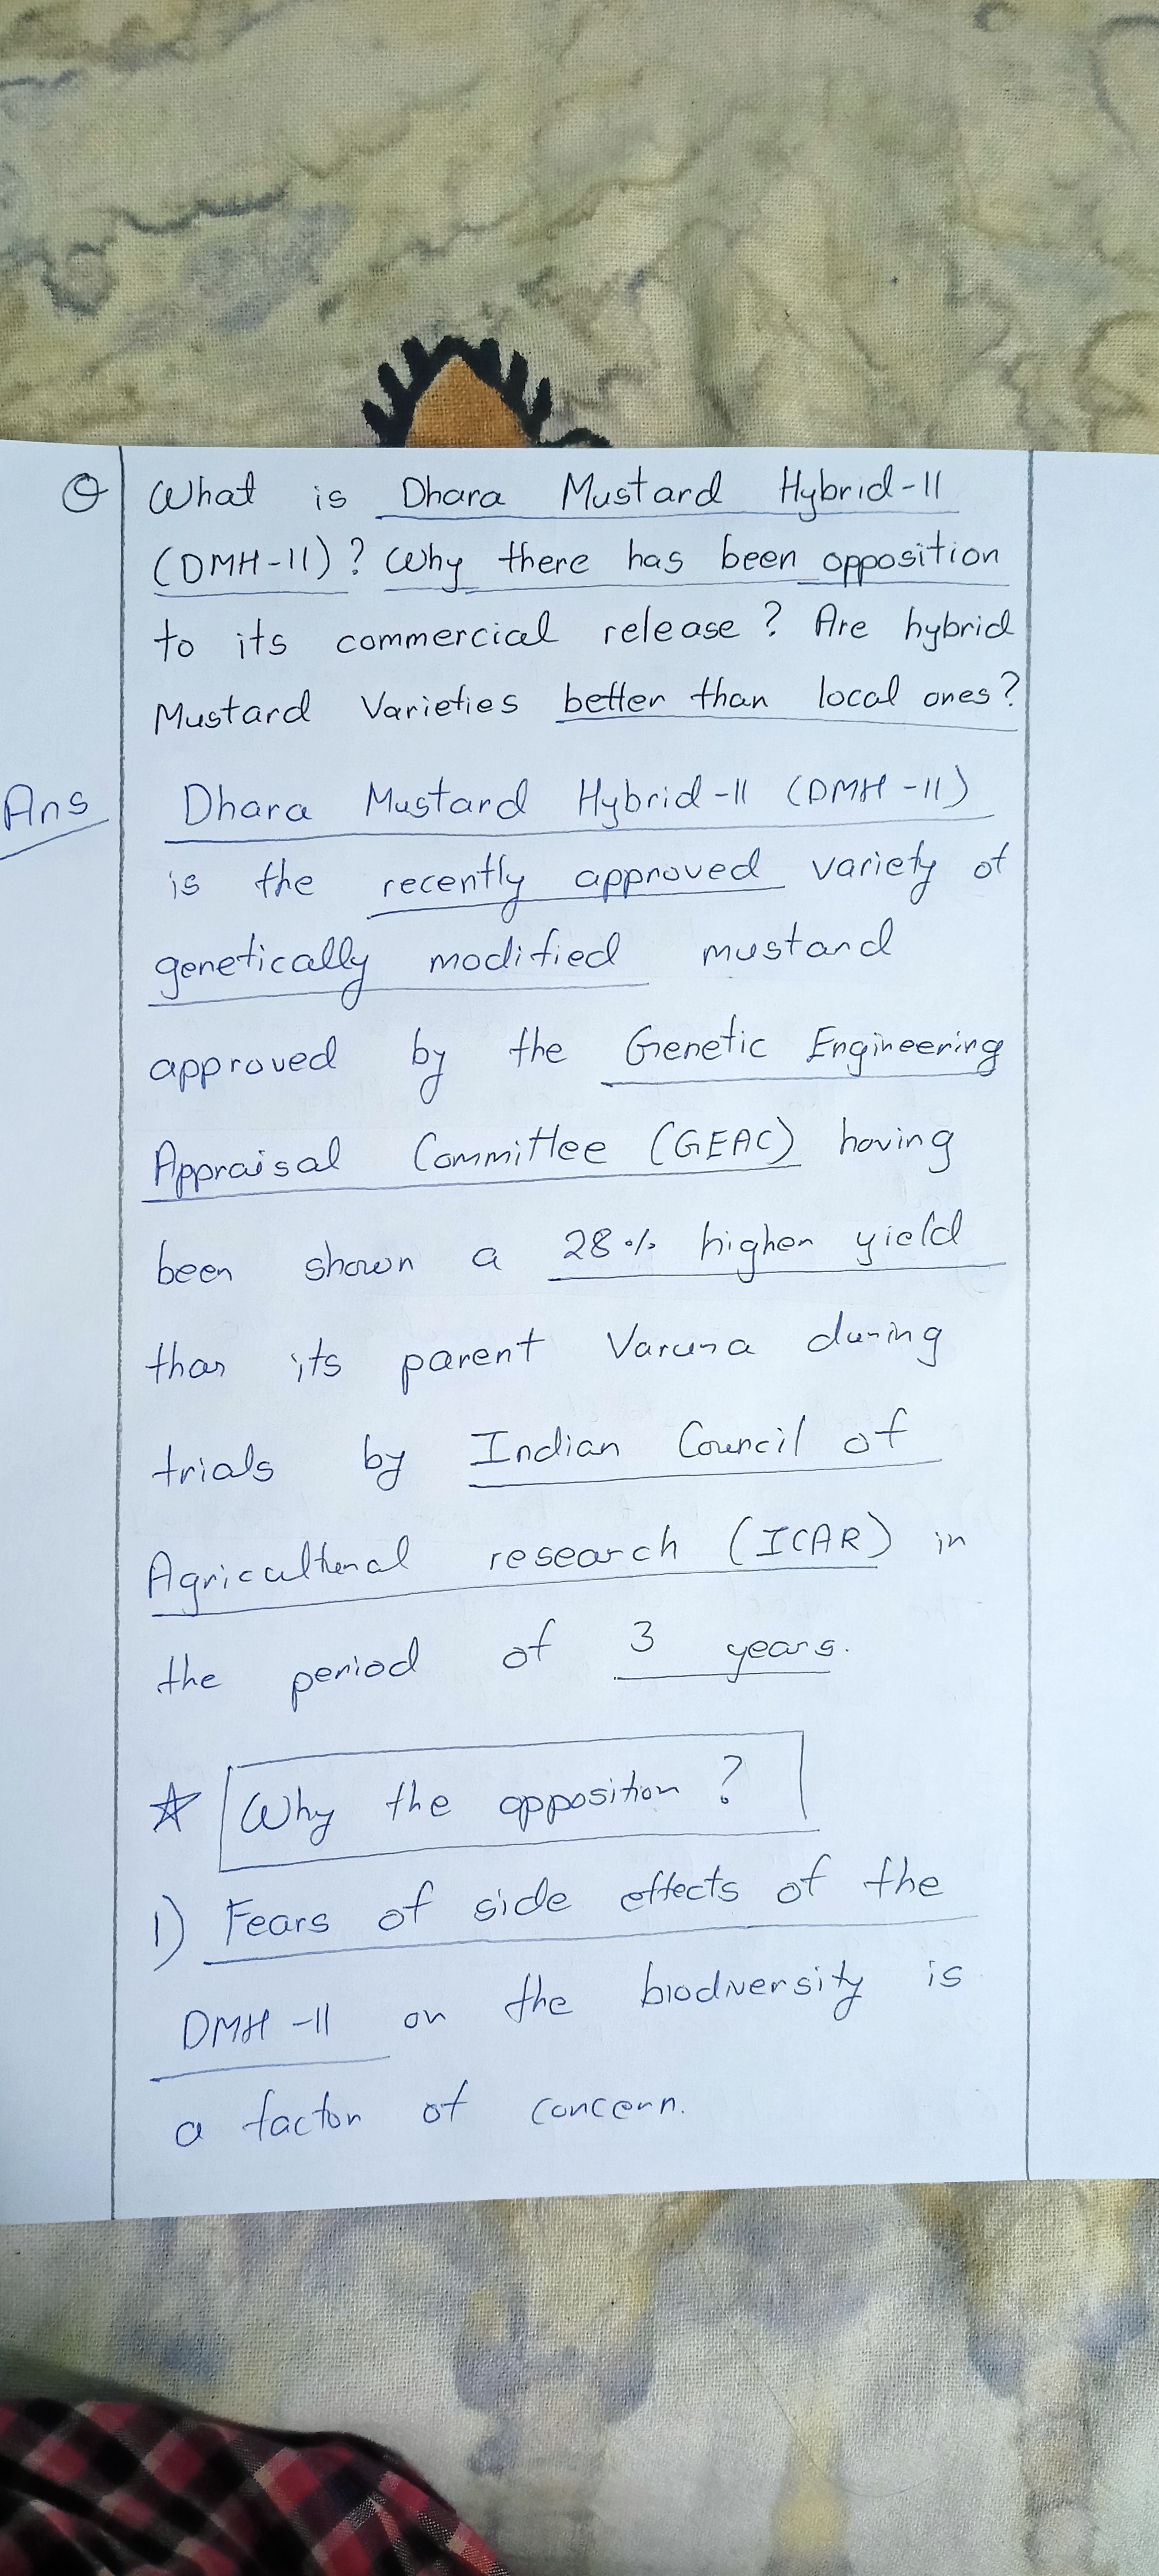 Q What is Dhara Mustard Hybrid-11
(DMH-11)? Why there has been opposition
to its commercial release? Are hybrid
Mustard Varieties better than local ones?
Ans Dhara Mustard Hybrid-11 (DMH-11)
is the recently approved variety of
genetically modified mustard
approved by the Genetic Engineering
Appraisal Committee (GEAC) having
been shown a 28% higher yield
than its parent Varuna during
trials by Indian Council of
Agricultural research (ICAR) in
the period of 3 years.
☆ Why the opposition?
1) Fears of side effects of the
DMH-11 on the biodiversity is
a factor of concern.